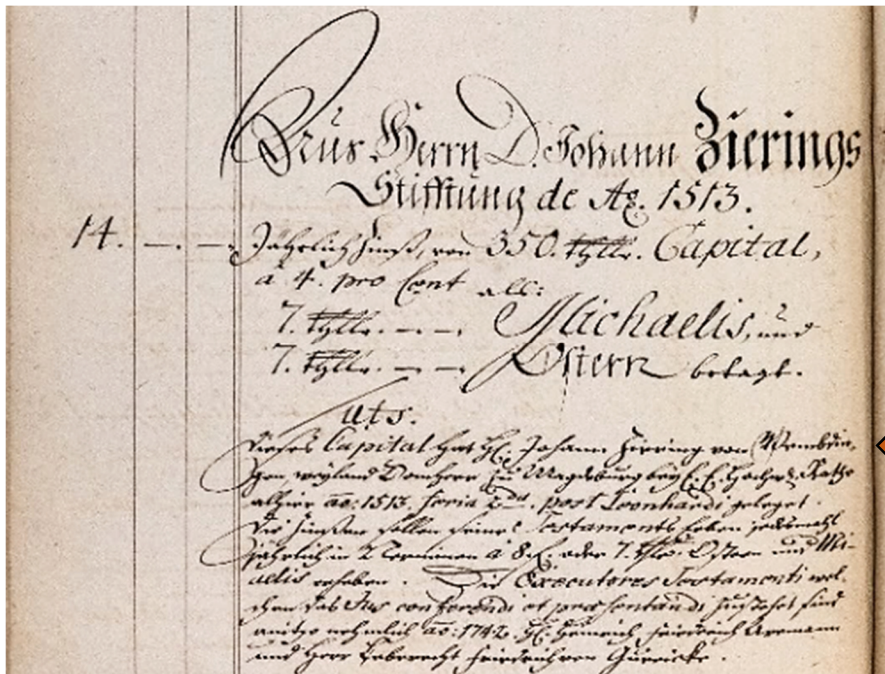 Aus Herrn D. Johann Zierings
Stifftung de Ao. 1513.
14. — . — . Jährlich Zinß, von 350. Thlr. Capital,
à 4. pro Cent als:
7. Thlr. — . — . Michaelis, und
7. Thlr. — . — Ostern betagt.
uts.
Dieses Capital hat H. Johann Ziering von
weyland Domherr zu Magdeburg bey E. E. Hochw. Rathe
allhier ao: 1513. feria 2da. post Leonhardi geleget.
Die Zinßen sollen seines Testaments haben jedesmahl
jährlich in 2 Terminen à 8 f. oder 7. Thlr. Ostern und Mi-
aelis erheben. Die Executores Testamenti wel-
chen das Jus conferendi et praesentandi zustehet sind
anitzo nehmlich ao: 1742. H. Heinrich Friedrich
und Herr Leberecht Friedrich von Guericke.